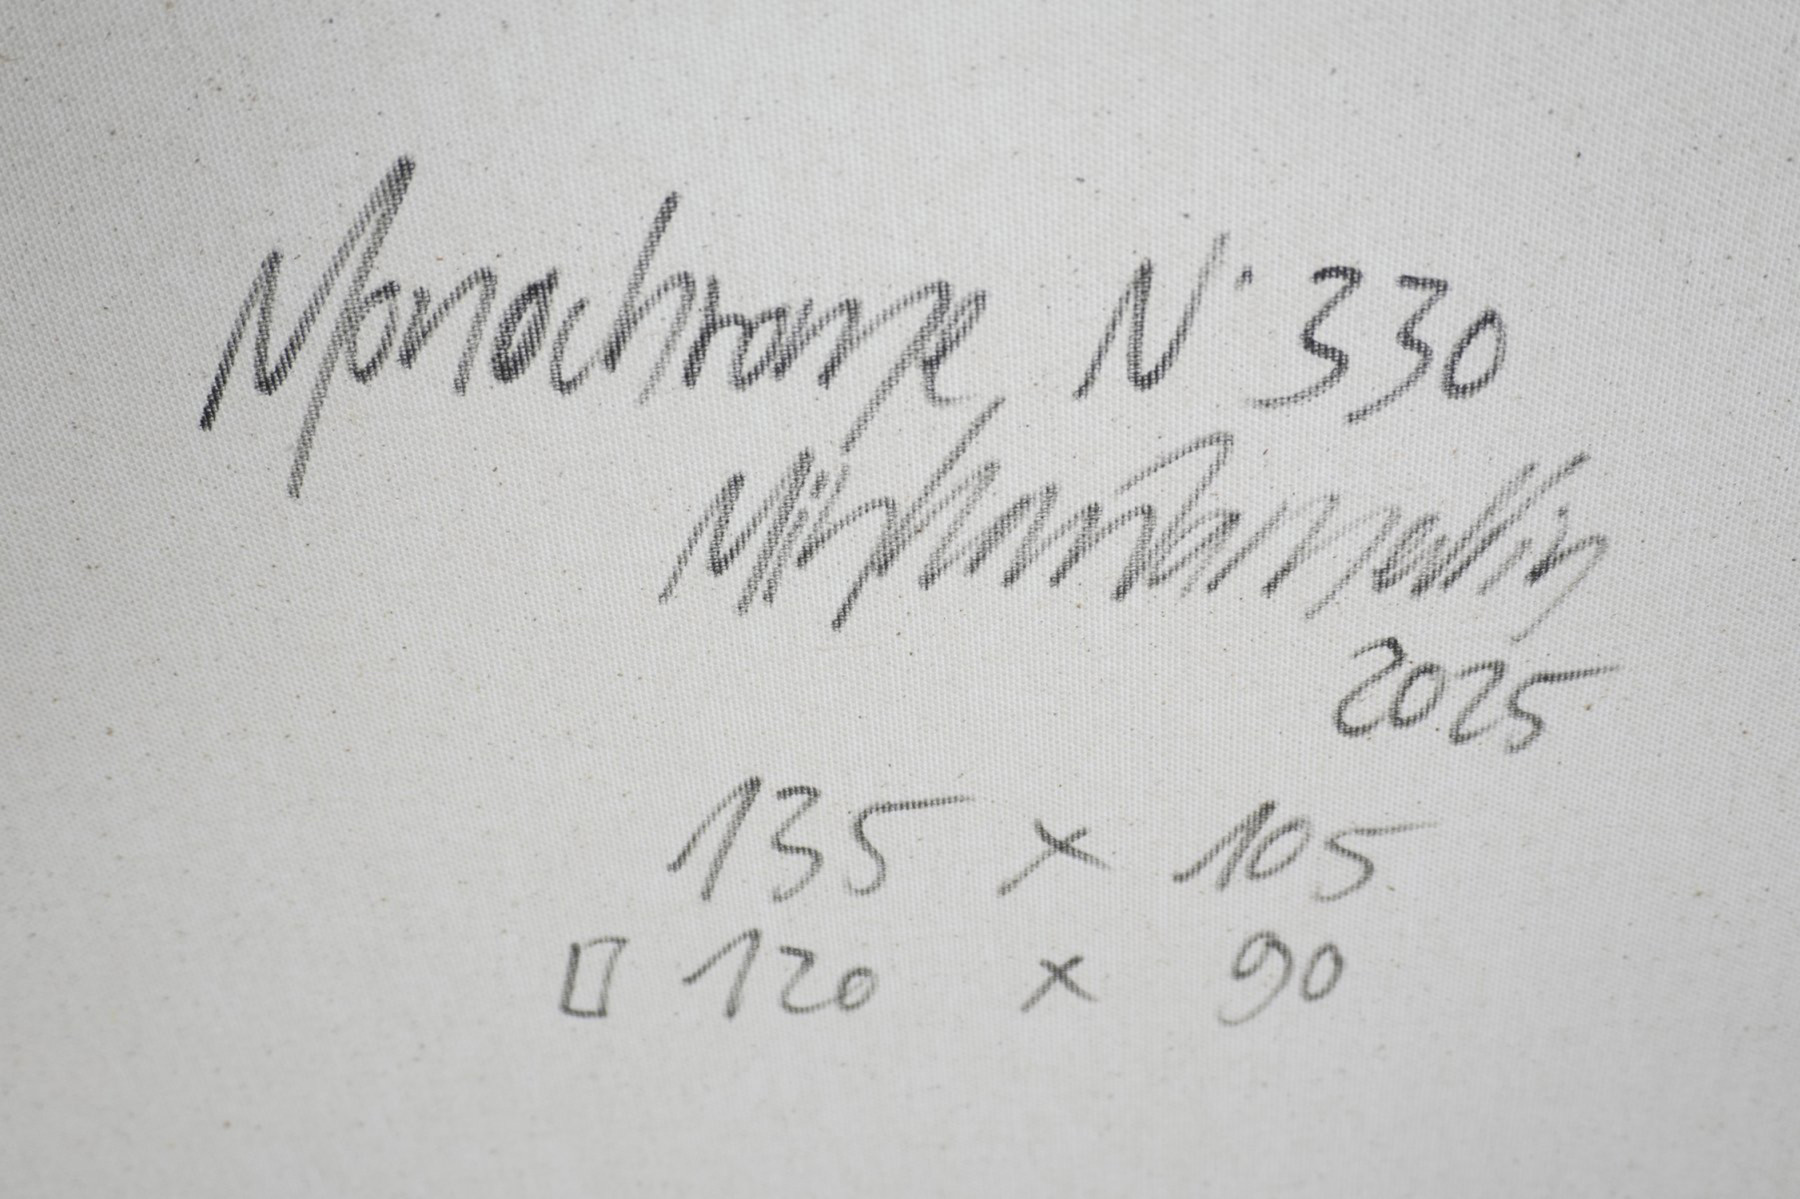 Monochrome N° 330
2025
135 x 105
▯ 120 x 90